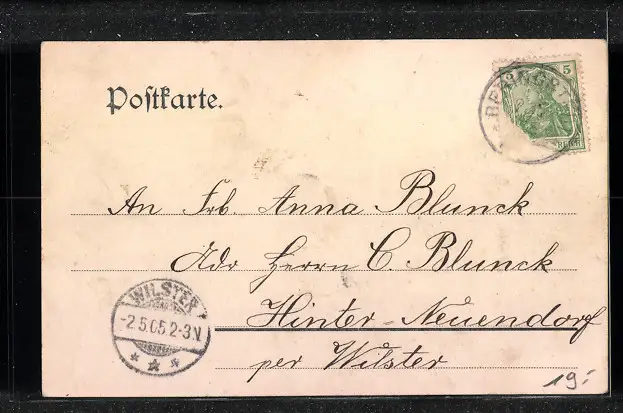 Postkarte.
5
An Frl. Anna Blunck
Adr Herrn C. Blunck
Hinter-Neuendorf
per Wilster
WILSTER
-2.5.05.2-3N
19.-